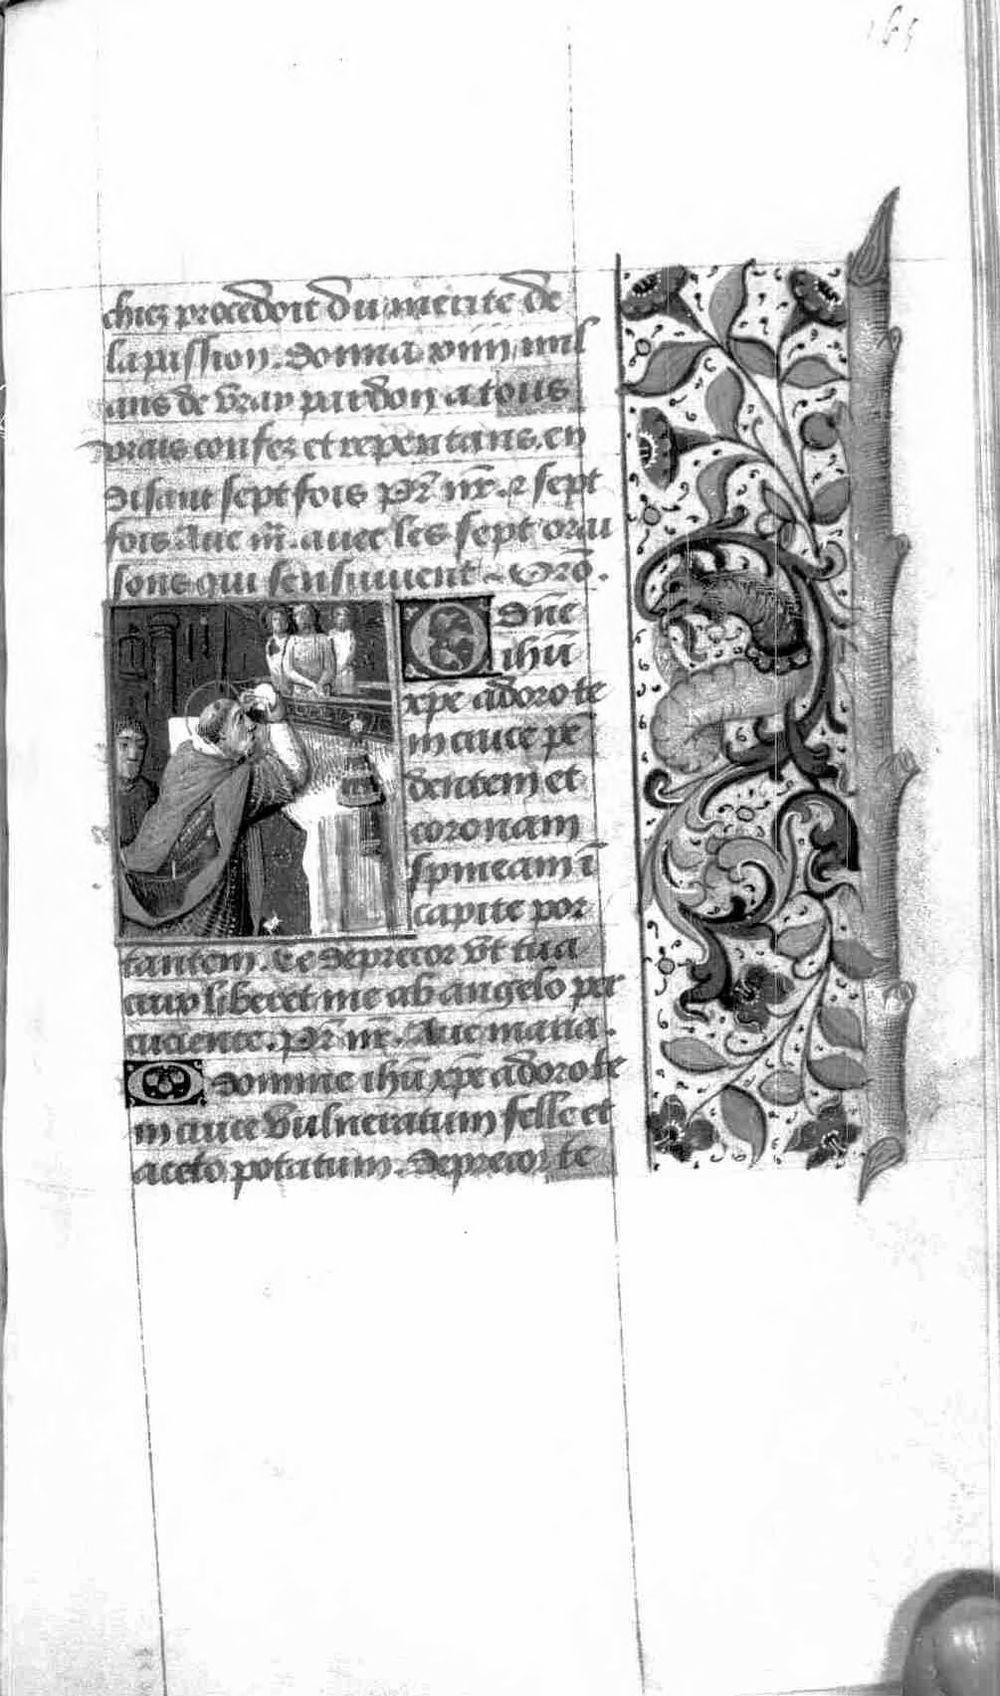 165
chiez procedoit du merite de
la passion. Donna xiiii mil
ans de vray pardon a tous
vrais confez et repentans. en
disant sept fois pr̃ nr̃. z sept
fois Aue m̃. auec les sept orai
sons qui sensuiuent ~ Orõ.
O Dñe
ihũ
xpe adoro te
in cruce pe
dentem et
coronam
spineam ĩ
capite por
tantem. Te deprecor vt tua
crux liberet me ab angelo per
cuciente. Pr̃ nr̃. Aue maria.
O domine ihũ xpẽ adoro te
in cruce vulneratum felle et
aceto potatum. deprecor te